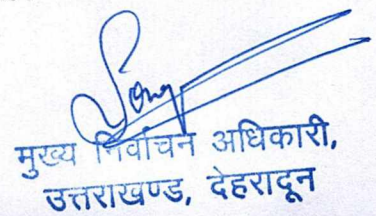 मुख्य निर्वाचन अधिकारी,
उत्तराखण्ड, देहरादून